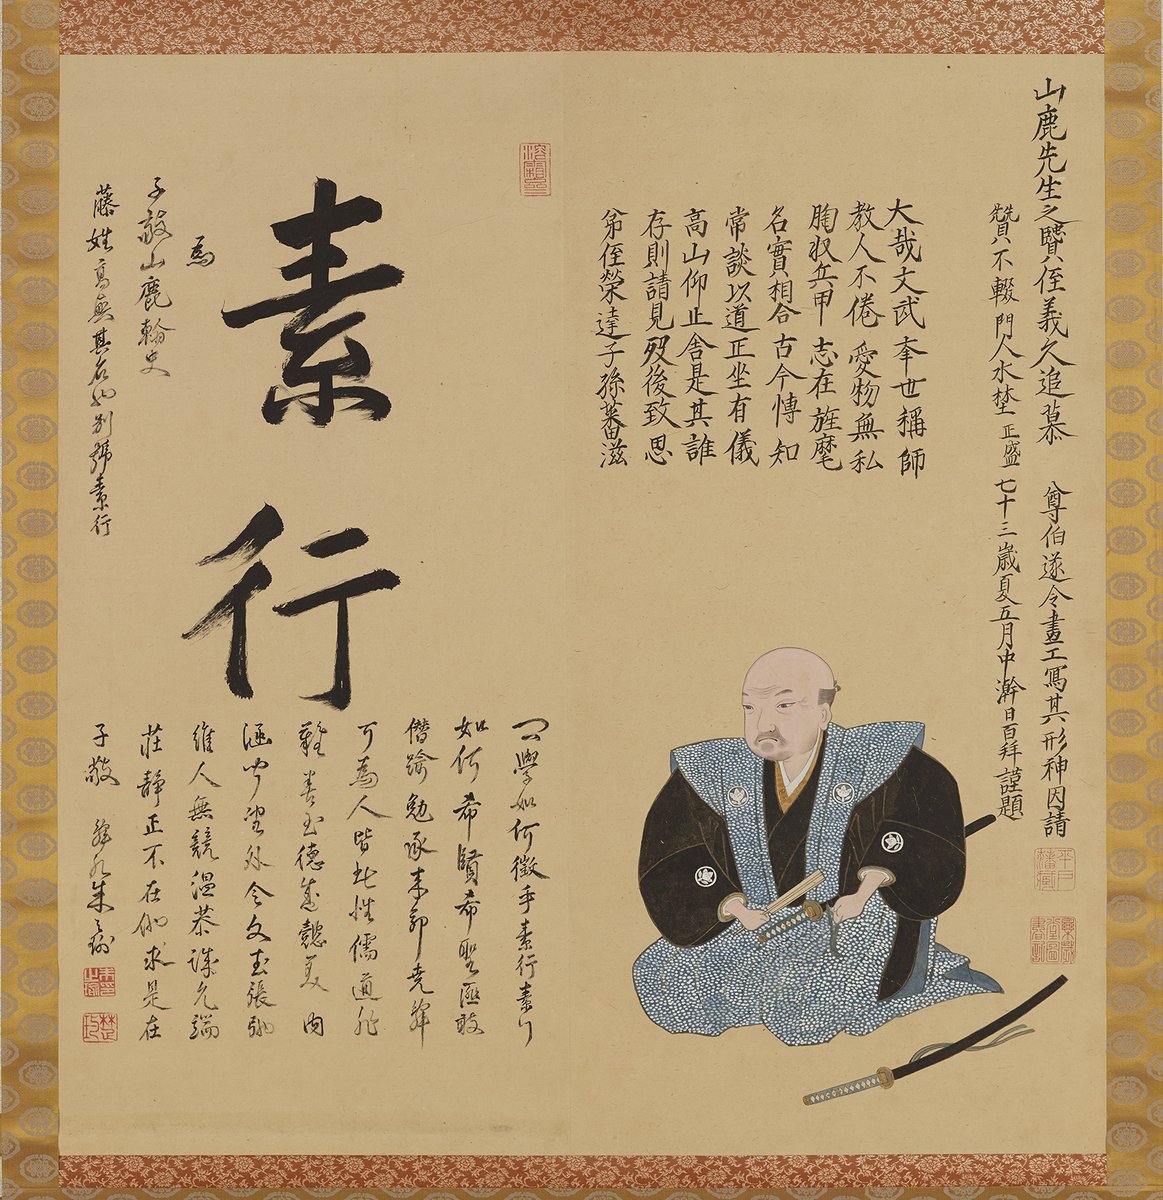 山鹿先生之賢姪義久追慕 尊伯遂令畫工寫其形神因請
贊不輟門人水埜正盛七十三歲夏五月中澣日百拜謹題
大哉文武奉世稱師
教人不倦愛物無私
胸收兵甲志在旌麾
名實相合古今博知
常談以道正坐有儀
高山仰止舍是其誰
存則請見歿後致思
弟姪榮達子孫蕃滋
素行
為
子敬山鹿翰史
藤姓高興其名也別號素行
學如何徵乎素行素行
如何希賢希聖匪敢
僭踰勉承來卲堯舜
可為人皆此性儒道非
難善至德成懿美內
涵聞望外令文武張弛
維人無競溫恭誠允端
莊靜正不在他求是在
子敬 舜水朱之瑜